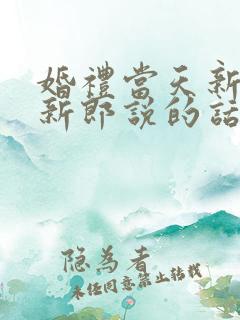 婚禮當天新
新郎說的話
隐为者
未经同意禁止转载